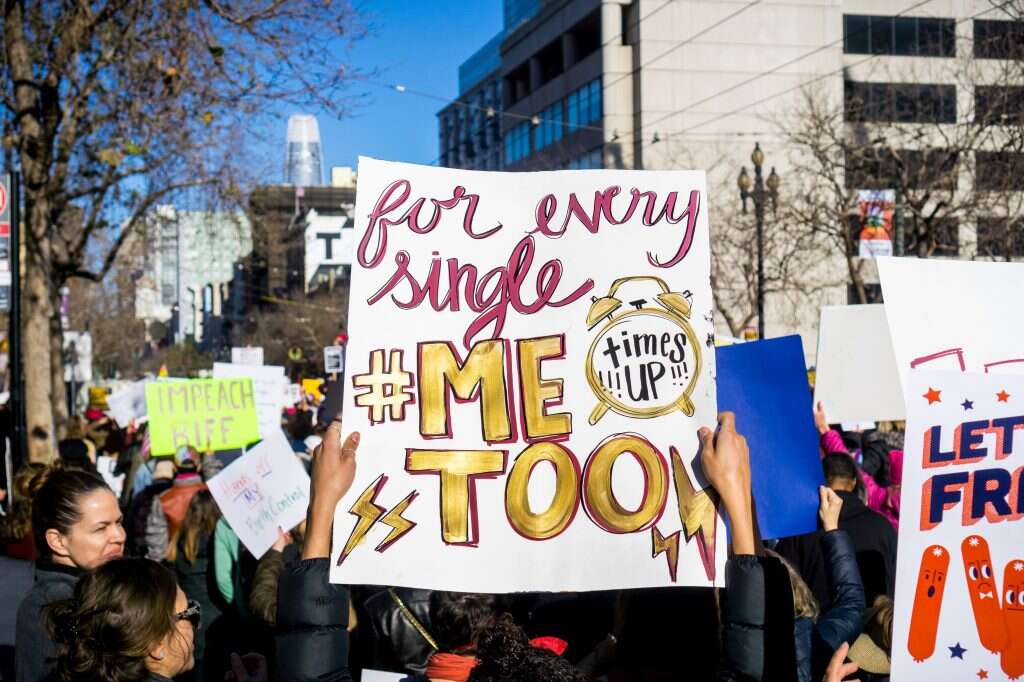 for every
single
#ME
TOO
times
!!! UP !!!
IMPEACH
KIFF
Hands off
My
Birth Control
LET
FR
T